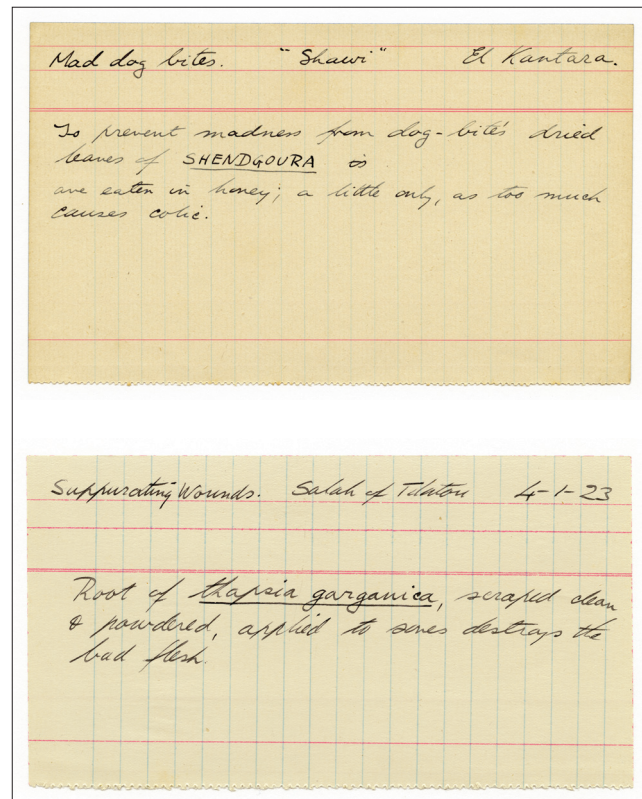 Mad dog bites. "Shawi" El Kantara.
To prevent madness from dog-bites dried
leaves of SHENDGOURA is
are eaten in honey; a little only, as too much
causes colic.
Suppurating Wounds. Salah of Tilatou 4-1-23
Root of thapsia garganica, scraped clean
& powdered, applied to sores destroys the
bad flesh.